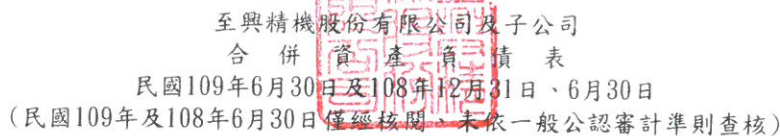 至興精機股份有限公司及子公司
合併資產負債表
民國109年6月30日及108年12月31日、6月30日
(民國109年及108年6月30日僅經核閱、未依一般公認審計準則查核)